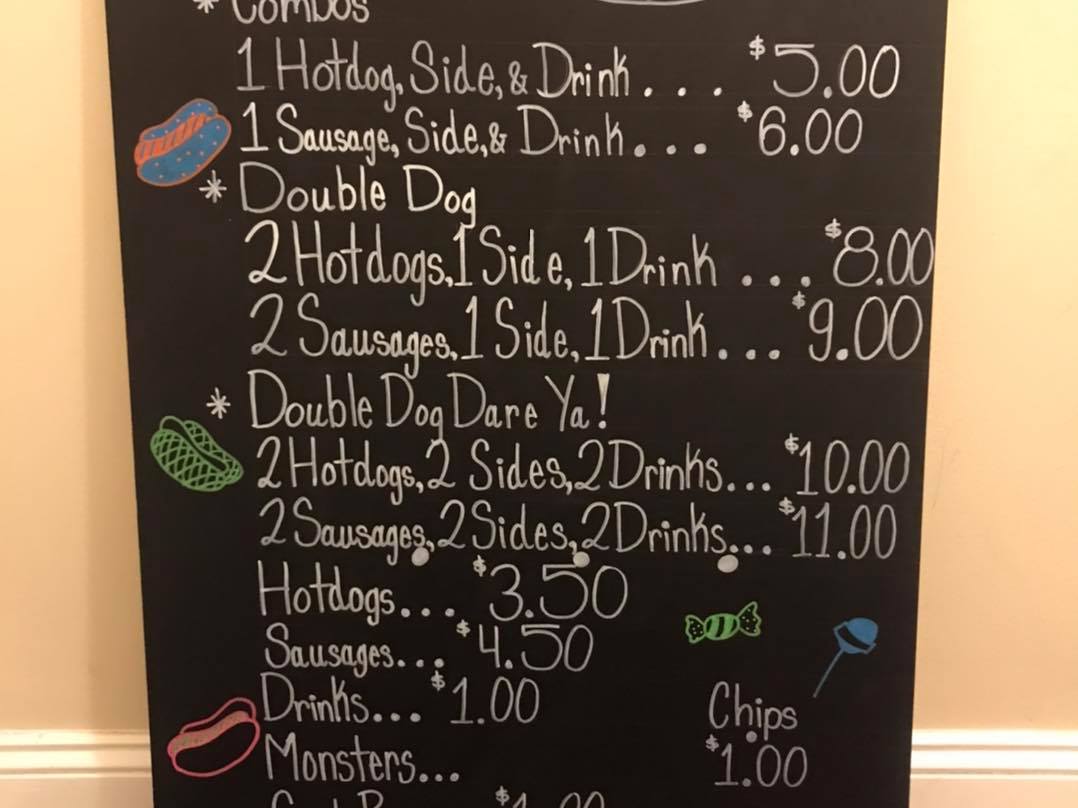 * Combos
1 Hotdog, Side, & Drink... $5.00
1 Sausage, Side, & Drink... $6.00
* Double Dog
2 Hotdogs, 1 Side, 1 Drink... $8.00
2 Sausages, 1 Side, 1 Drink... $9.00
* Double Dog Dare Ya!
2 Hotdogs, 2 Sides, 2 Drinks... $10.00
2 Sausages, 2 Sides, 2 Drinks... $11.00
Hotdogs... $3.50
Sausages... $4.50
Drinks... $1.00
Monsters...
Chips
$1.00